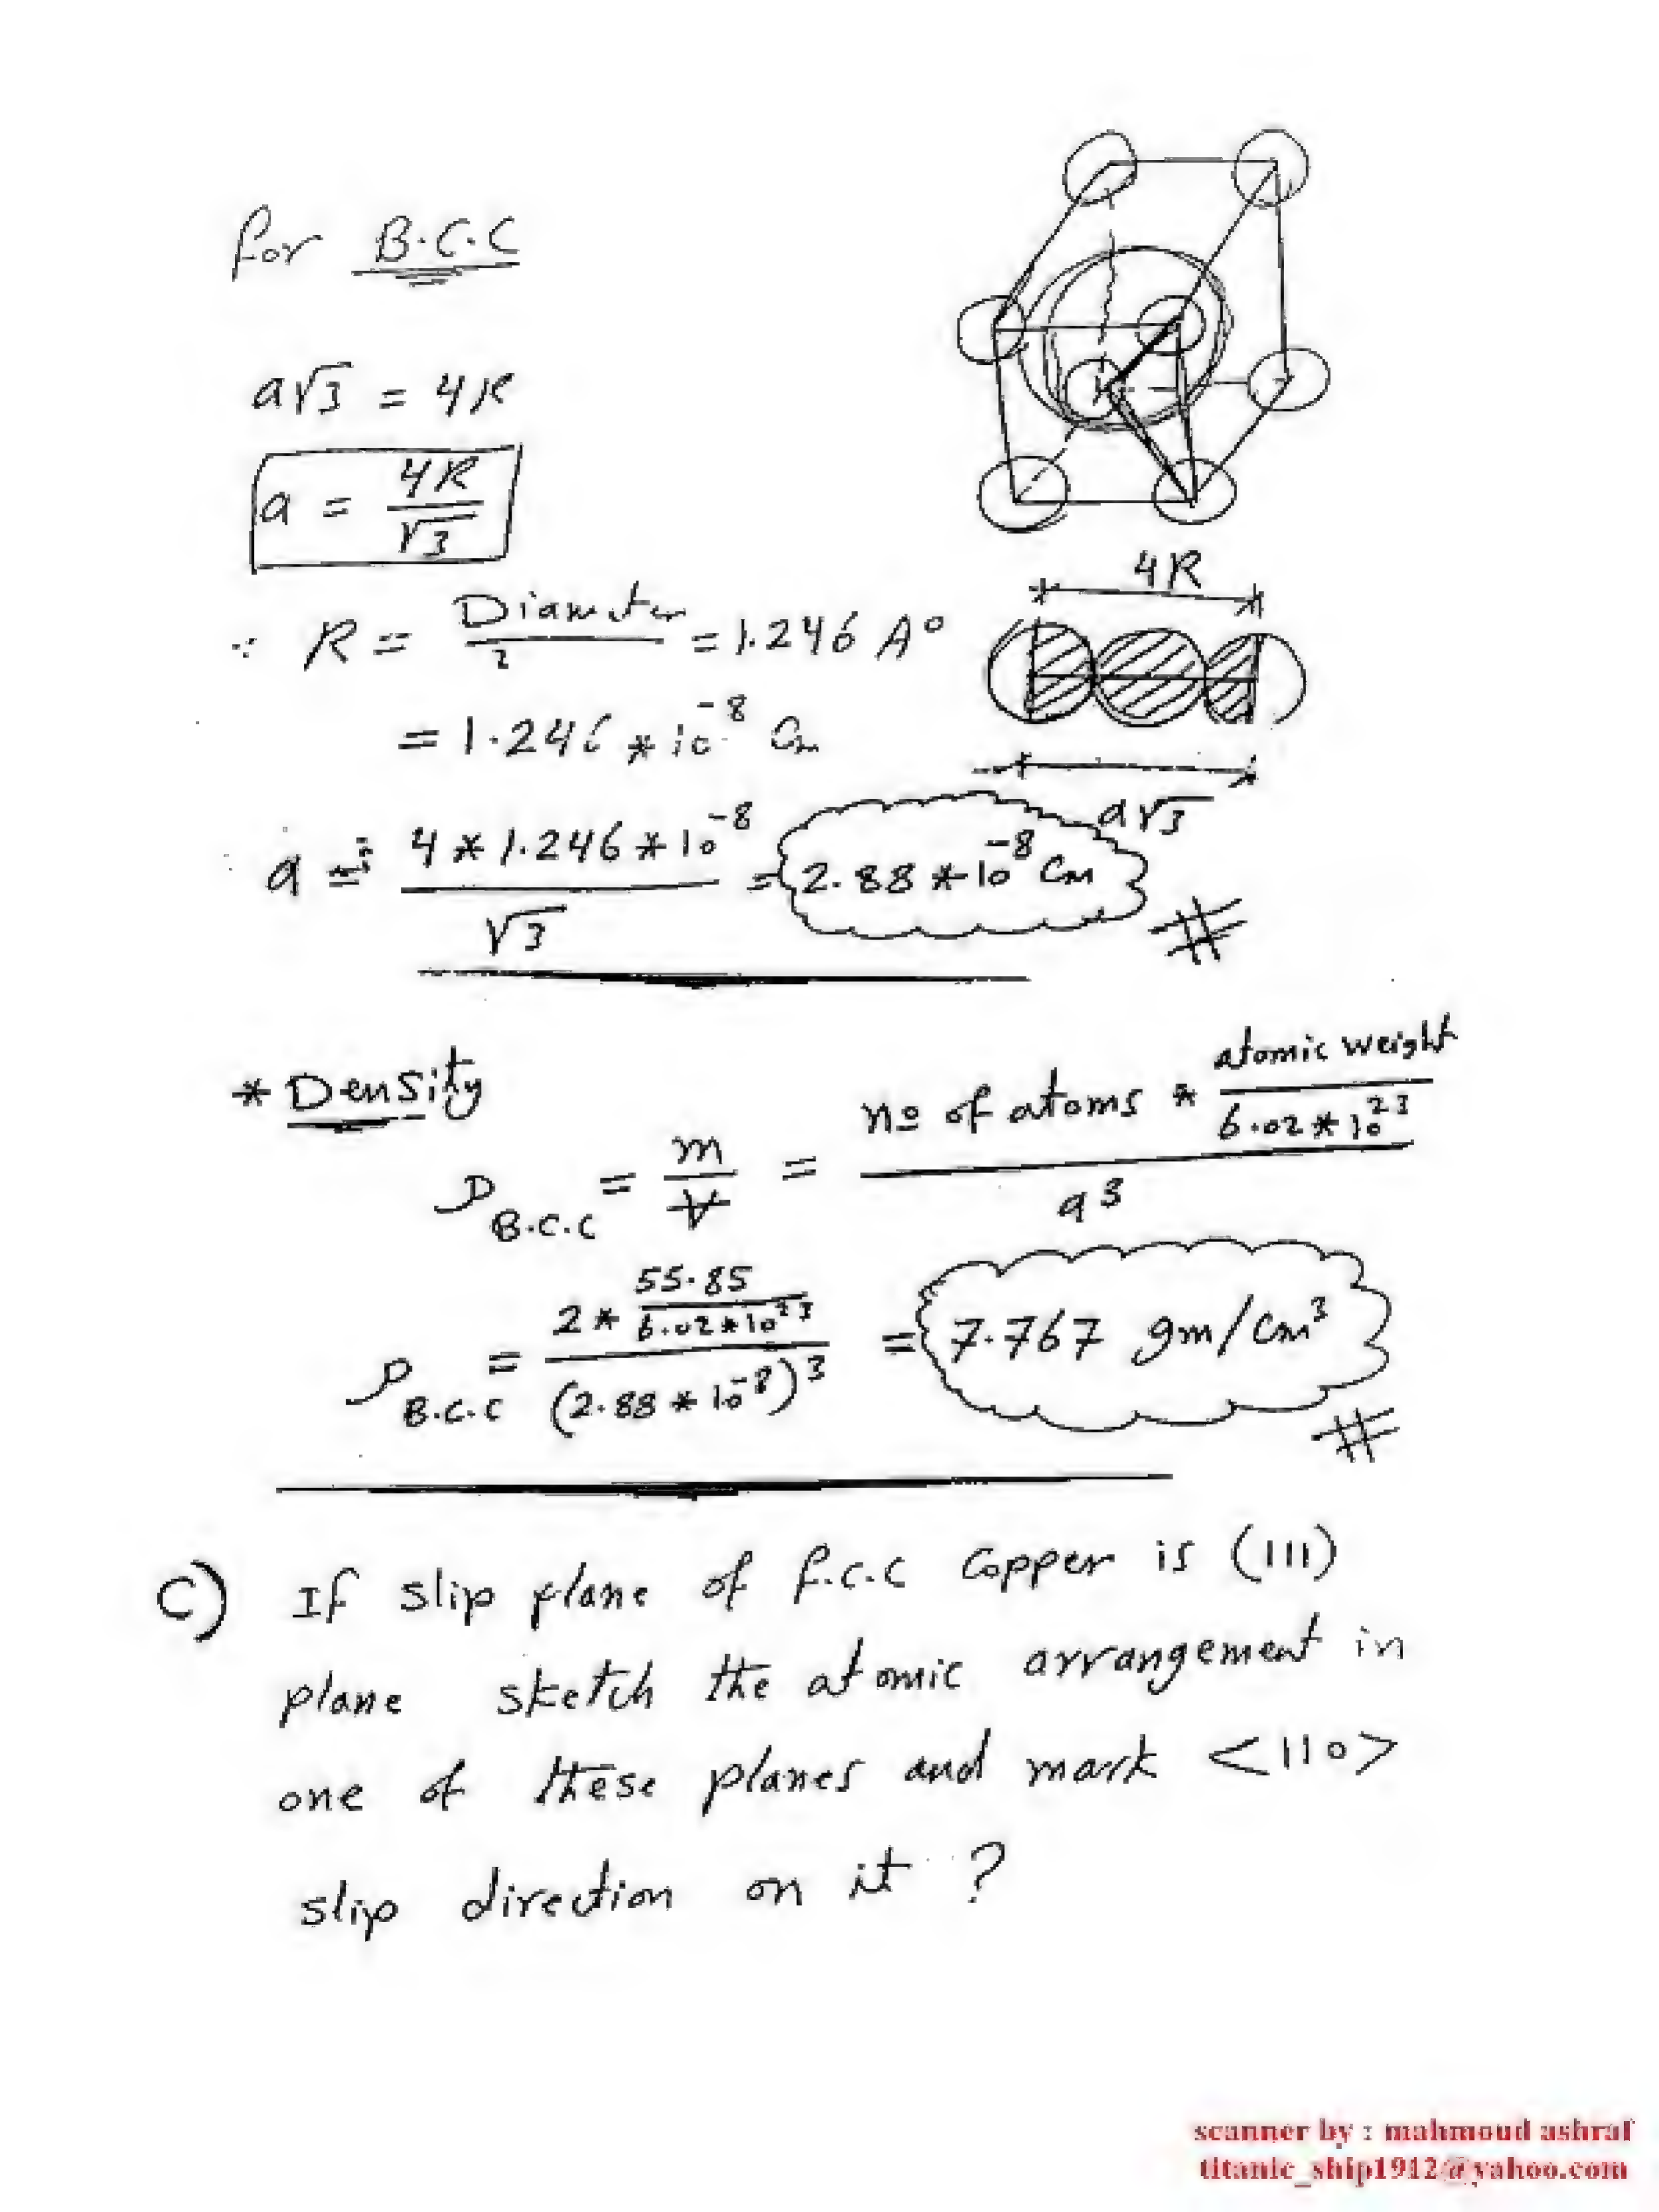 for B.C.C
a√3 = 4R
a = 4R/√3
4R
∵ R = Diameter/2 = 1.246 A°
= 1.246 * 10^-8 Cm
a√3
a = 4 * 1.246 * 10^-8 / √3 = 2.88 * 10^-8 Cm #
* Density
ρ B.C.C = m/V = no of atoms * atomic weight / 6.02 * 10^23 / a^3
ρ B.C.C = 2 * 55.85 / 6.02 * 10^23 / (2.88 * 10^-8)^3 = 7.767 gm/cm^3 #
C) If slip plane of f.c.c Copper is (111)
plane sketch the atomic arrangement in
one of these planes and mark <110>
slip direction on it ?
scanner by : mahmoud ashraf
titanic_ship1912@yahoo.com